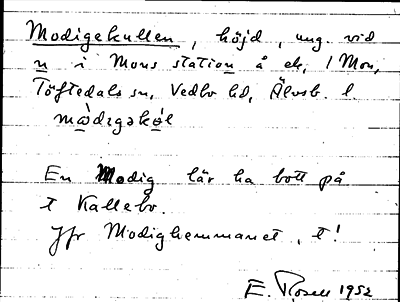 Modigekullen, höjd, ung. vid
n i Mons station å ek, 1 Mon,
Töftedals sn, Vedbo hd, Älvsb. l
En Modig lär ha bott på
t Kallebo.
Jfr Modighemmanet, t!
E. Rosell 1952